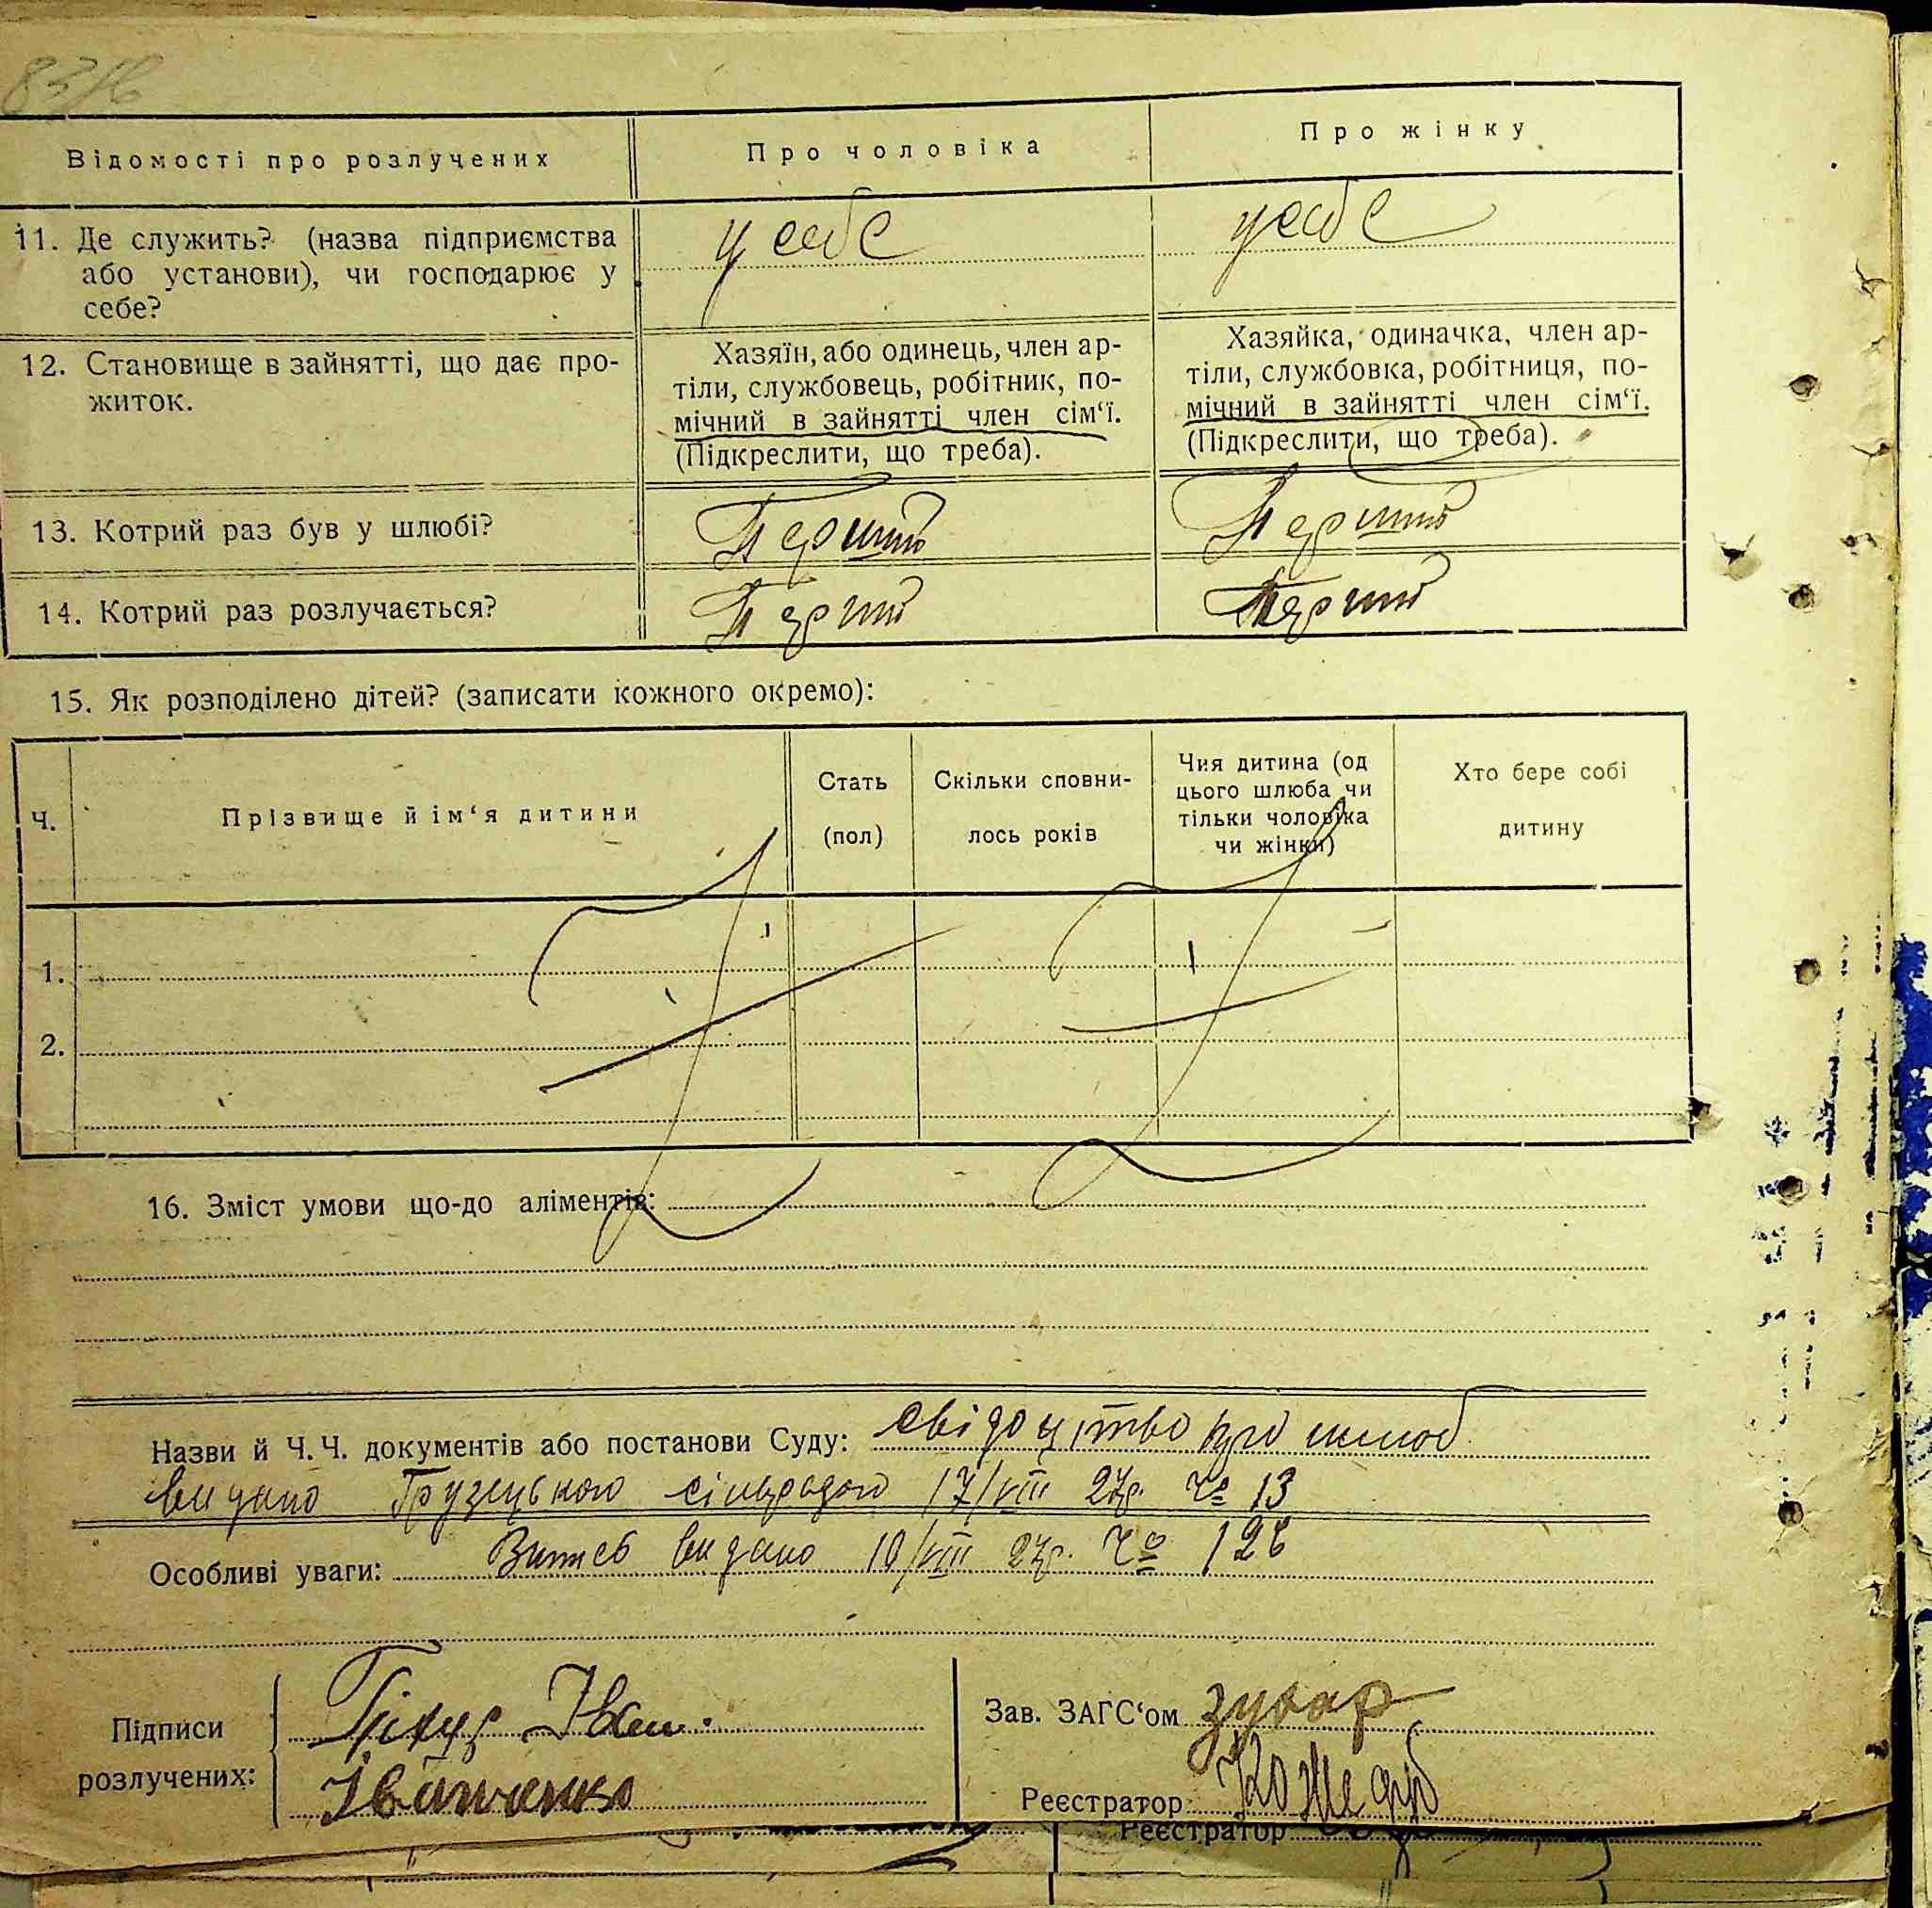 Відомості про розлучених
Про чоловіка
Про жінку
11. Де служить? (назва підприємства
або установи), чи господарює у
себе?
у себе
у себе
12. Становище в зайнятті, що дає про-
житок.
Хазяїн, або одинець, член ар-
тіли, службовець, робітник, по-
мічний в зайнятті член сім‘ї.
(Підкреслити, що треба).
Хазяйка, одиначка, член ар-
тіли, службовка, робітниця, по-
мічний в зайнятті член сім‘ї.
(Підкреслити, що треба).
13. Котрий раз був у шлюбі?
Перший
Перший
14. Котрий раз розлучається?
Перший
Перший
15. Як розподілено дітей? (записати кожного окремо):
Ч.
Прізвище й ім‘я дитини
Стать
(пол)
Скільки сповни-
лось років
Чия дитина (од
цього шлюба чи
тільки чоловіка
чи жінки)
Хто бере собі
дитину
1.
2.
16. Зміст умови що-до аліментів:
Назви й Ч. Ч. документів або постанови Суду: свідоцтво про шлюб
видано Грузського сільрадою 17/VIII 27р. Чо 13
Особливі уваги: Витяг видано 10/VIII 27р. Чо 126
Підписи
розлучених:
Іван.
Іващенко
Зав. ЗАГС‘ом
Реєстратор
Реєстратор